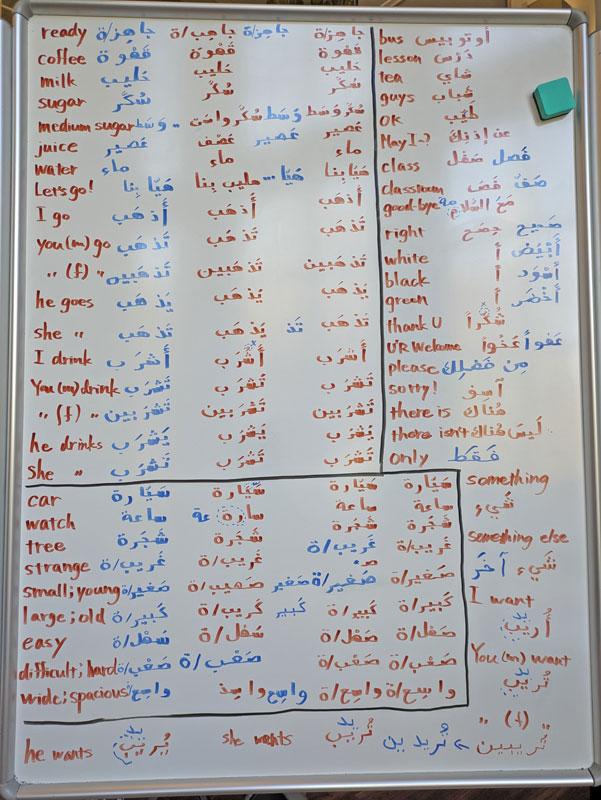 ready جاهِز/ة جاهِب/ة جاهِزة جاهِز/ة
coffee قَهْوة قَهْوَة قَهْوة
milk حَليب حَليب حَليب
sugar سُكَّر سُكَّر سُكَّر
medium sugar وَسَط سُكَّر واسَت وَسَط سُكَّر وَسَط
juice عَصير عَصْف عَصير عَصير
water ماء ماء ماء
Let's go! هَيّا بِنا حليب بنا ... هَيّا هَيّا بِنا
I go أَذهَب أَذهَب أَذهَب
you (m) go تَذهَب تَذهَب تَذهَب
" (f) " تَذهَبين تَذهَبين تَذهَبين
he goes يَذهَب يَذهَب يَذهَب
she " تَذهَب يَذهَب تَذ تَذهَب
I drink أَشرَب أَشرَب أَشرَب
You (m) drink تَشرَب تَشرَب تَشرَب
" (f) " تَشرَبين تَشرَبين تَشرَبين
he drinks يَشرَب يَشرَب يَشرَب
She " تَشرَب تَشرَب تَشرَب
bus أوتوبيس
lesson دَرْس
tea شاي
guys شَباب
OK طَيِّب
May I-? عن إذنك
class صَفْل فَصل
classroom فَصَ صَفّ
good-bye مَعَ السَّلامة
right صَحيح
white أَ أَبْيَض
black أَ أَسْوَد
green أَ أَخْضَر
thank U شُكْراً
U'R Welcome عَخُواً عَفواً
please مِن فَضلِك
sorry! آسِف
there is هُناك
there isn't لَيسَ هُناك
only فَقَط
car سَيّارة سَيّارة سَيّارة سَيّارة
watch ساعة سارة عة ساعة ساعة
tree شَجَرة شَجَرة شَجَرة شَجَرة
strange غَريب/ة غَريب/ة غَريب/ة غَريب/ة
small; young صَغير/ة صَهيب/ة صغير صَغير/ة صَغير/ة
large; old كَبير/ة كَريب/ة كَبير كَبير/ة كَبير/ة
easy سَهْل/ة سَفل/ة صَهْل/ة صَهْل/ة
difficult; hard صَعْب/ة صَعْب/ة صَعْب/ة صَعْب/ة
wide; spacious واسِع/ة وا سِذ واسِع واسِع/ة واسِع/ة
something
شَيء
something else
شَيء آخَر
I want
أُريب يد
You (m) want
تُريب يد
" (f) "
تُريبين > تُريدين
she wants تُريب يد
he wants يُريب يد